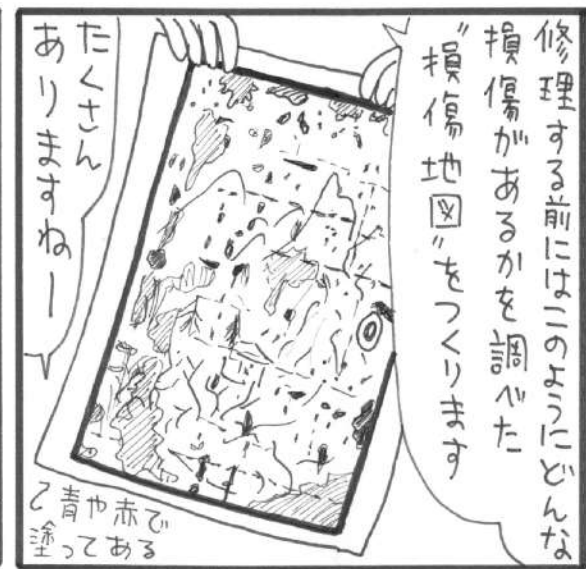 修理する前にはこのようにどんな
損傷があるかを調べた
"損傷地図"をつくります
たくさん
ありますねー
青や赤で
塗ってある